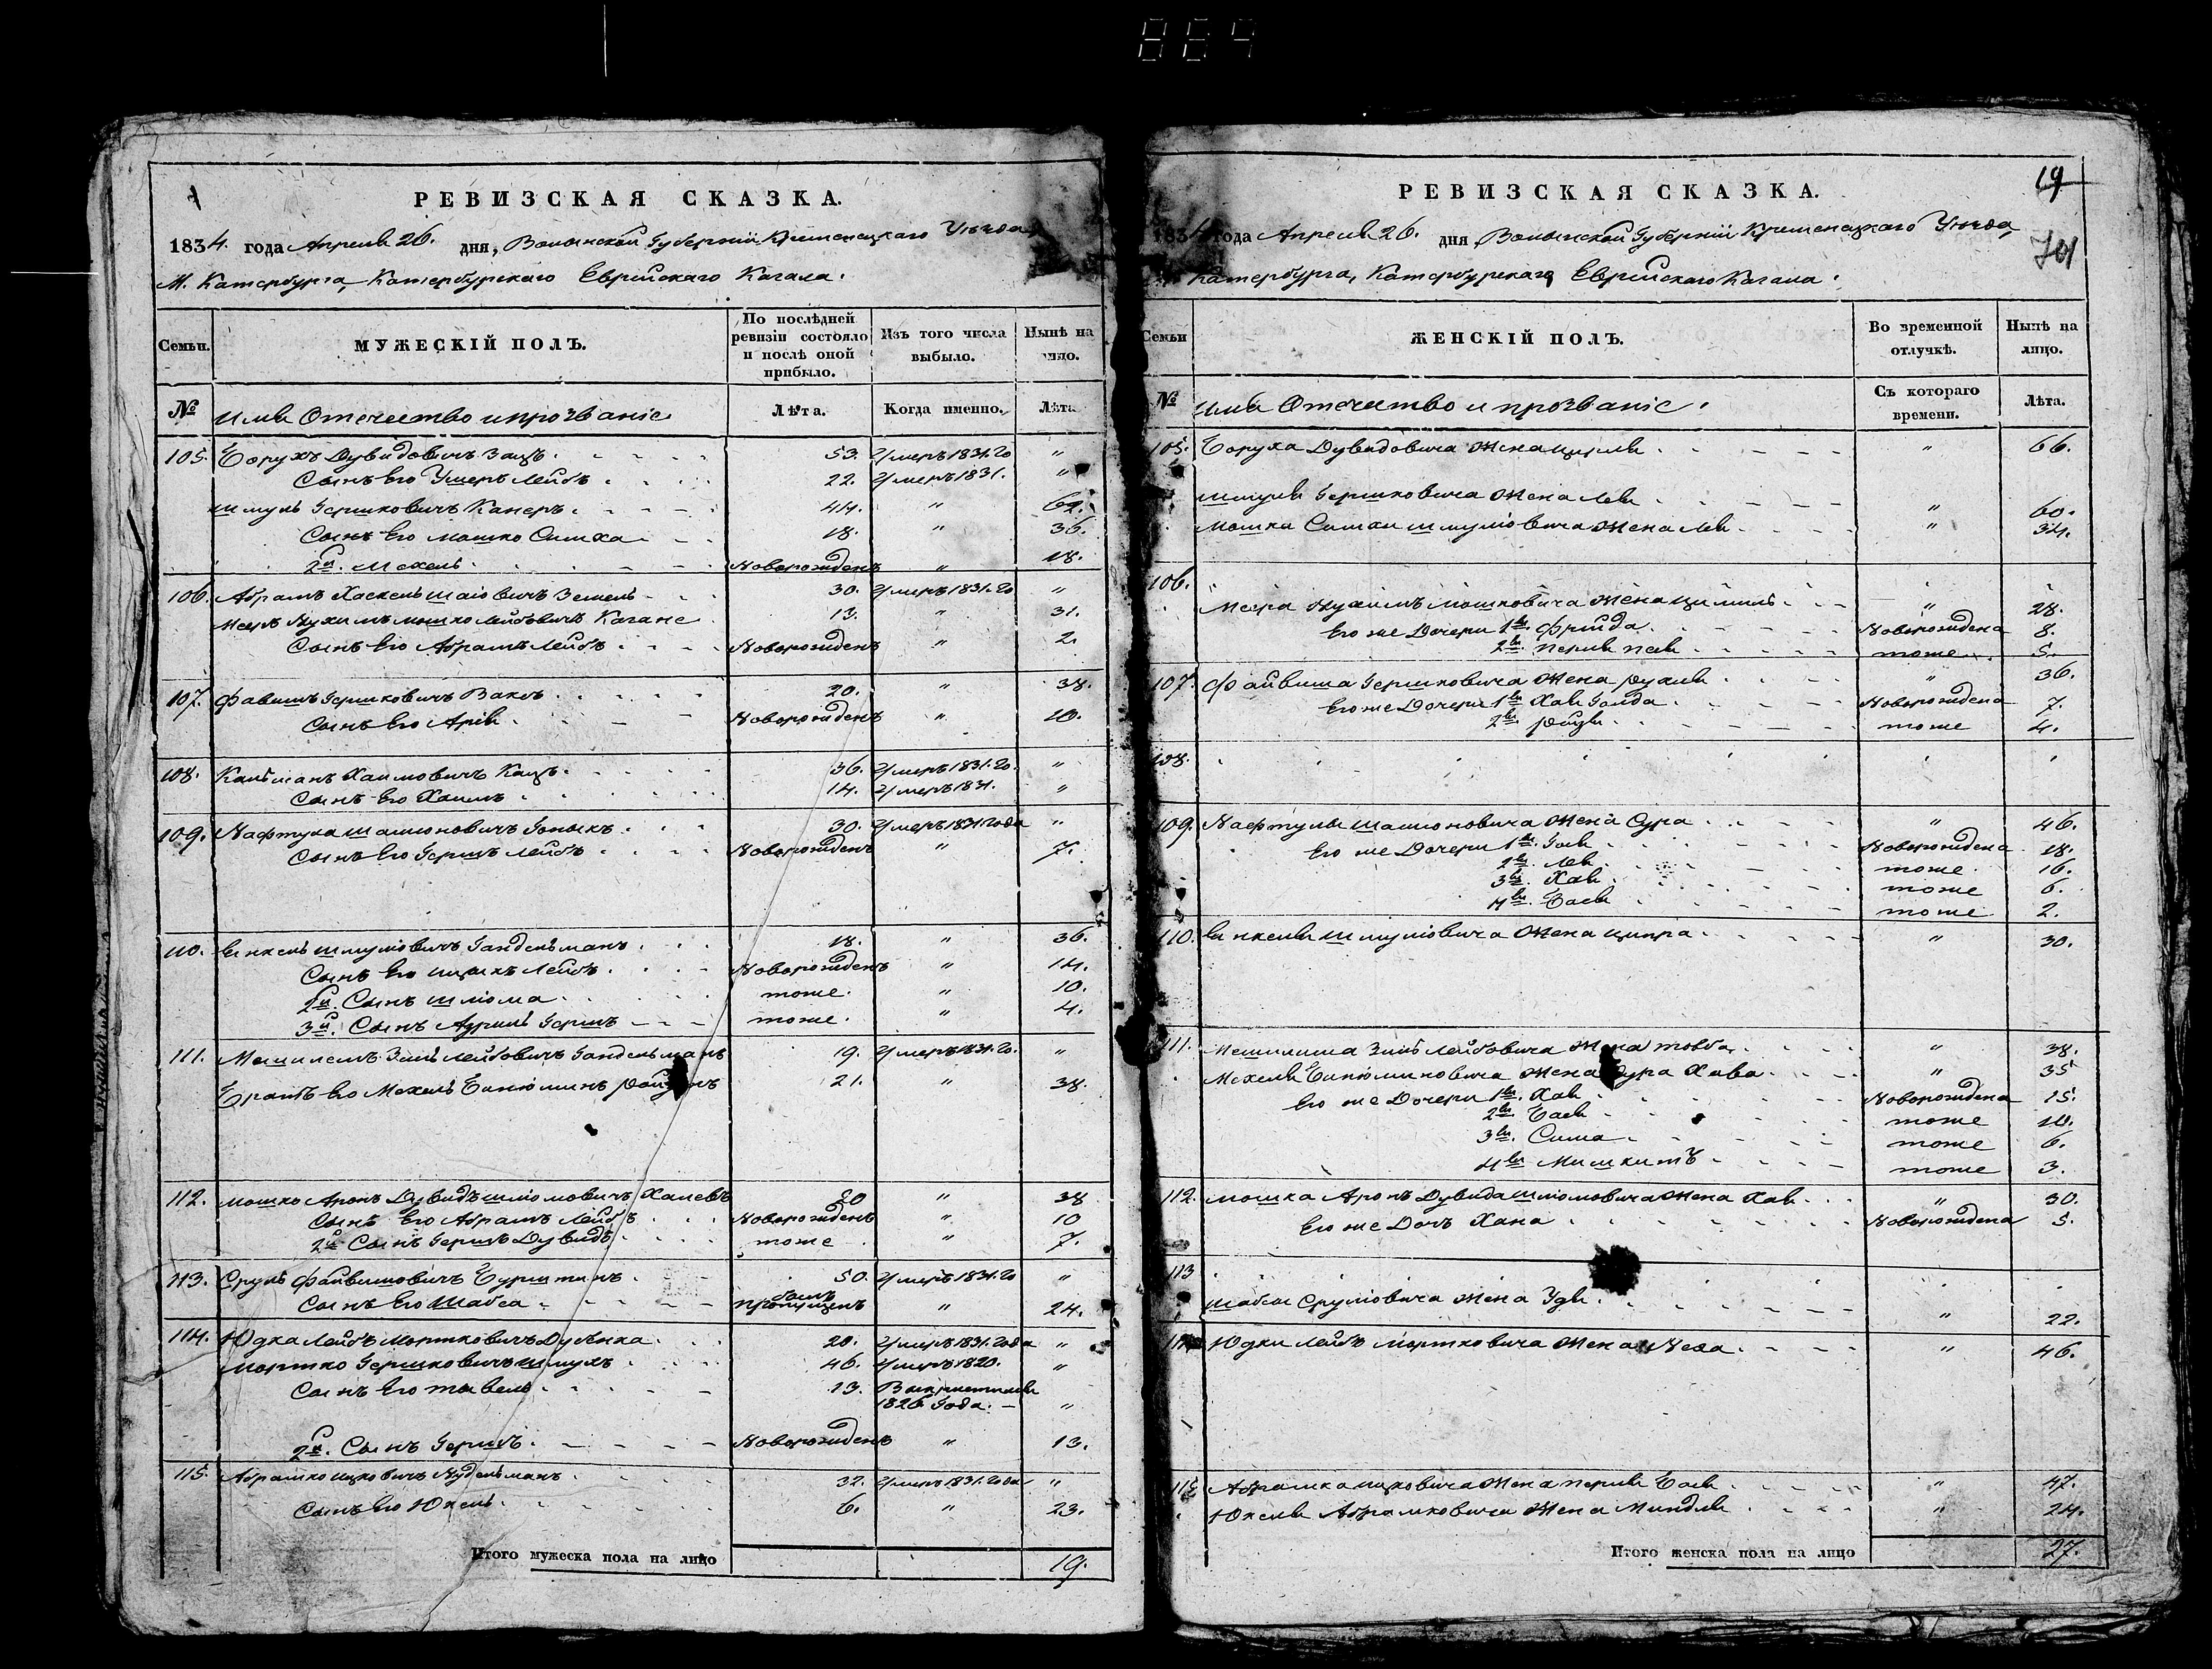 864
РЕВИЗСКАЯ СКАЗКА.
1834. года Апреля 26. дня, Волынской Губернии Кременецкаго Уезда
М. Катербурга, Катербурскаго Еврейскаго Кагала.
Семьи.
МУЖЕСКІЙ ПОЛЪ.
По послѣдней ревизіи состояло и послѣ оной прибыло.
Изъ того числа выбыло.
Нынѣ на лицо.
№
Имя Отечество и прозваніе
Лѣта.
Когда именно.
Лѣта
105. Борухъ Дувидовичъ Зацъ. 53. Умеръ 1831. го "
Сынъ Его Ушеръ Лейбъ 22. Умеръ 1831. "
Шмуль ГершковичъКанеръ. 44. "
Сынъ Его Мошко Симха 18. " 36.
2й. Мехель. Новорожденъ " 18.
106. Абрамъ Хаскель Шаіовичъ Земель 30. Умеръ 1831. го "
Мееръ Нухимъ Мошко Лейбовичъ Кагане 13. " 31.
Сынъ Его Абрамъ Лейбъ Новорожденъ " 2.
107. Фавишъ Гершковичъ Ваксъ. 20. " 38.
Сынъ Его Арія Новорожденъ " 10.
108. Кальманъ Хаимовичъ Кацъ. 36. Умеръ 1831. го. "
Сынъ Его Хаимъ 14. Умеръ 1831. "
109. Нафтула Шашоновичъ Гоныкъ 30. Умеръ 1831 года "
Сынъ Его Гершъ Лейбъ Новорожденъ " 7.
110. Янкель Шмуліовичъ Гандельманъ 18. " 36.
Сынъ Его Ицыкъ Лейбъ Новорожденъ " 14.
2й. Сынъ Шліома тоже. " 10.
3й. Сынъ Азриль Гершъ тоже. " 4.
111. Мешилемъ Зиль Лейбовичъ Гандельманъ 19. Умеръ 1831. го. "
Братъ Его Мехель Бинюминъ 21. " 38.
112. Мошко Аронъ Дувидъ Шліомовичъ Халевъ 20 " 38
Сынъ Его Абрамъ Лейбъ Новорожденъ " 10
2й Сынъ Гершъ Дувидъ тоже " 7.
113. Сруль Файвишовичъ Бурштинъ 50. Умеръ 1831. го "
Сынъ Его Шабса былъ пропущенъ " 24.
114. Юдка Лейбъ Мортковичъ Дубенка 20. Умеръ 1831. года "
Мортко Гершковичъ Шмукъ 46. Умеръ 1820. "
Сынъ Его Тевель 13. Выкрестился
1826 Года. "
2й. Сынъ Гершъ. Новорожденъ " 13.
115. Абрамко Ицковичъ Нудельманъ 32. Умеръ 1831. года "
Сынъ Его Юкель. 6. " 23.
Итого мужеска пола на лицо 19.
19
РЕВИЗСКАЯ СКАЗКА.
1834 года Апреля 26. дня Волынской Губерніи Кременецкаго Уезда,
Катербурга, Катербурскаго Еврейскаго Кагала.
Семьи
ЖЕНСКІЙ ПОЛЪ.
Во временной отлучкѣ.
Нынѣ на лицо.
№
Имя Отечество и прозваніе.
Съ котораго времени.
Лѣта.
105. Боруха Дувидовича Жена Цирля " 66.
Шмуля Гершковича Жена Лея " 60.
Мошка Симхи Шмуліовича Жена Лея " 34.
106.
Меера Нухимъ Мошковича Жена " 28.
Его же Дочери 1я. Фрейда. Новорождена 8.
2я. Перля тоже. 5.
107. Файвиша Гершковича Жена Рухля " 36.
Его же Дочери 1я Хая Голда Новорождена 7.
2я. Рейзя тоже 4.
108.
109. Нафтулы Шашоновича Жена Сура " 46.
Его же Дочери 1я. Гоя Новорождена 18.
2я. Лея тоже. 16.
3я. Хая тоже 6.
4я. Бася тоже 2.
110. Янкеля Шмуліовича Жена Ципра " 30.
111. Мешилима Зиль Лейбовича Жена Товба " 38.
Мехеля Бинюминовича Жена Сура Хава " 35
Его же Дочери 1я. Хая Новорождена 15.
2я. Бася тоже 10.
3я. Сима тоже 6.
4я тоже 3.
112. Мошка Аронъ Дувида Шліомовича Жена Хая " 30.
Его же Дочь Хана Новорождена 5.
113
Шабсы Сруліовича Жена Удя " 22.
114 Юдки Лейбъ Мортковича Жена Неха " 46.
115 Абрамка Ицковича Жена Перля Бася " 47.
Юкеля Абрамковича Жена Миндля " 24.
Итого женска пола на лицо 27.